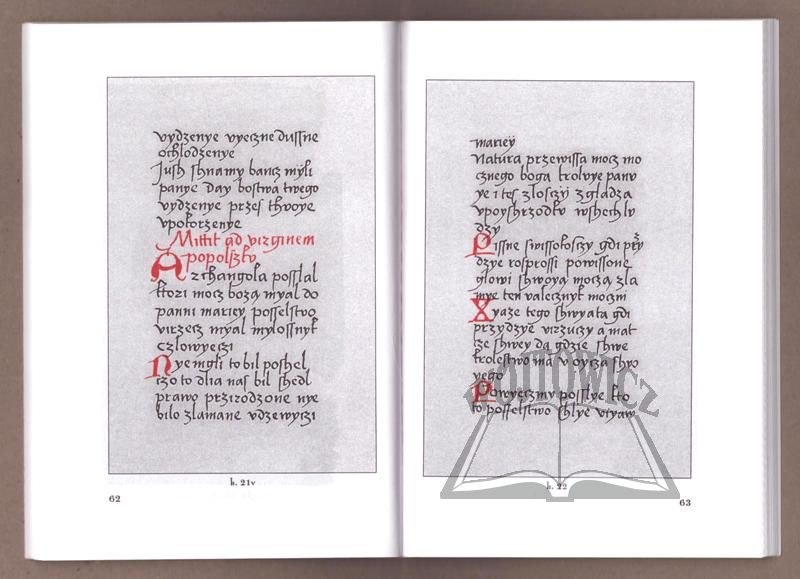 vydzenye vyeczne dussne
ochlodzenye
Jush shnamy bancz myli
panye day bostwa twego
vydzenye przes thwoye
vpokorzenye
Mittit ad virginem
popolszku
Archangola posslal
ktori mocz bozą myal do
panni mariey posselstwo
virzecz myal mylossnyk
człowyeczi
Nyemgli to bil poshel
czo to dlia nas bil shedl
prawo przirodzone nye
bilo zlamane vdzewyczi
h. 21v
62
marieÿ
Natura przewissa mocz mo
cznego boga krolvye panv
ye i tes zlosczy zgladza
vpoyshrzodkv wshech lv
dzy
Pissne swissokoszy gdi prz
dzye rosprossi powissone
glowi shwoyą moczą zla
mye ten valecznyk moczni
Xyaze tego shwyata gdi
przydzye virzuczy a mat
cze shwey da gdzie shwe
krolestwo ma v oycza shwo
yego
Powyeczmy posslye kto
to posselstwo shlye viyaw
h. 22
63